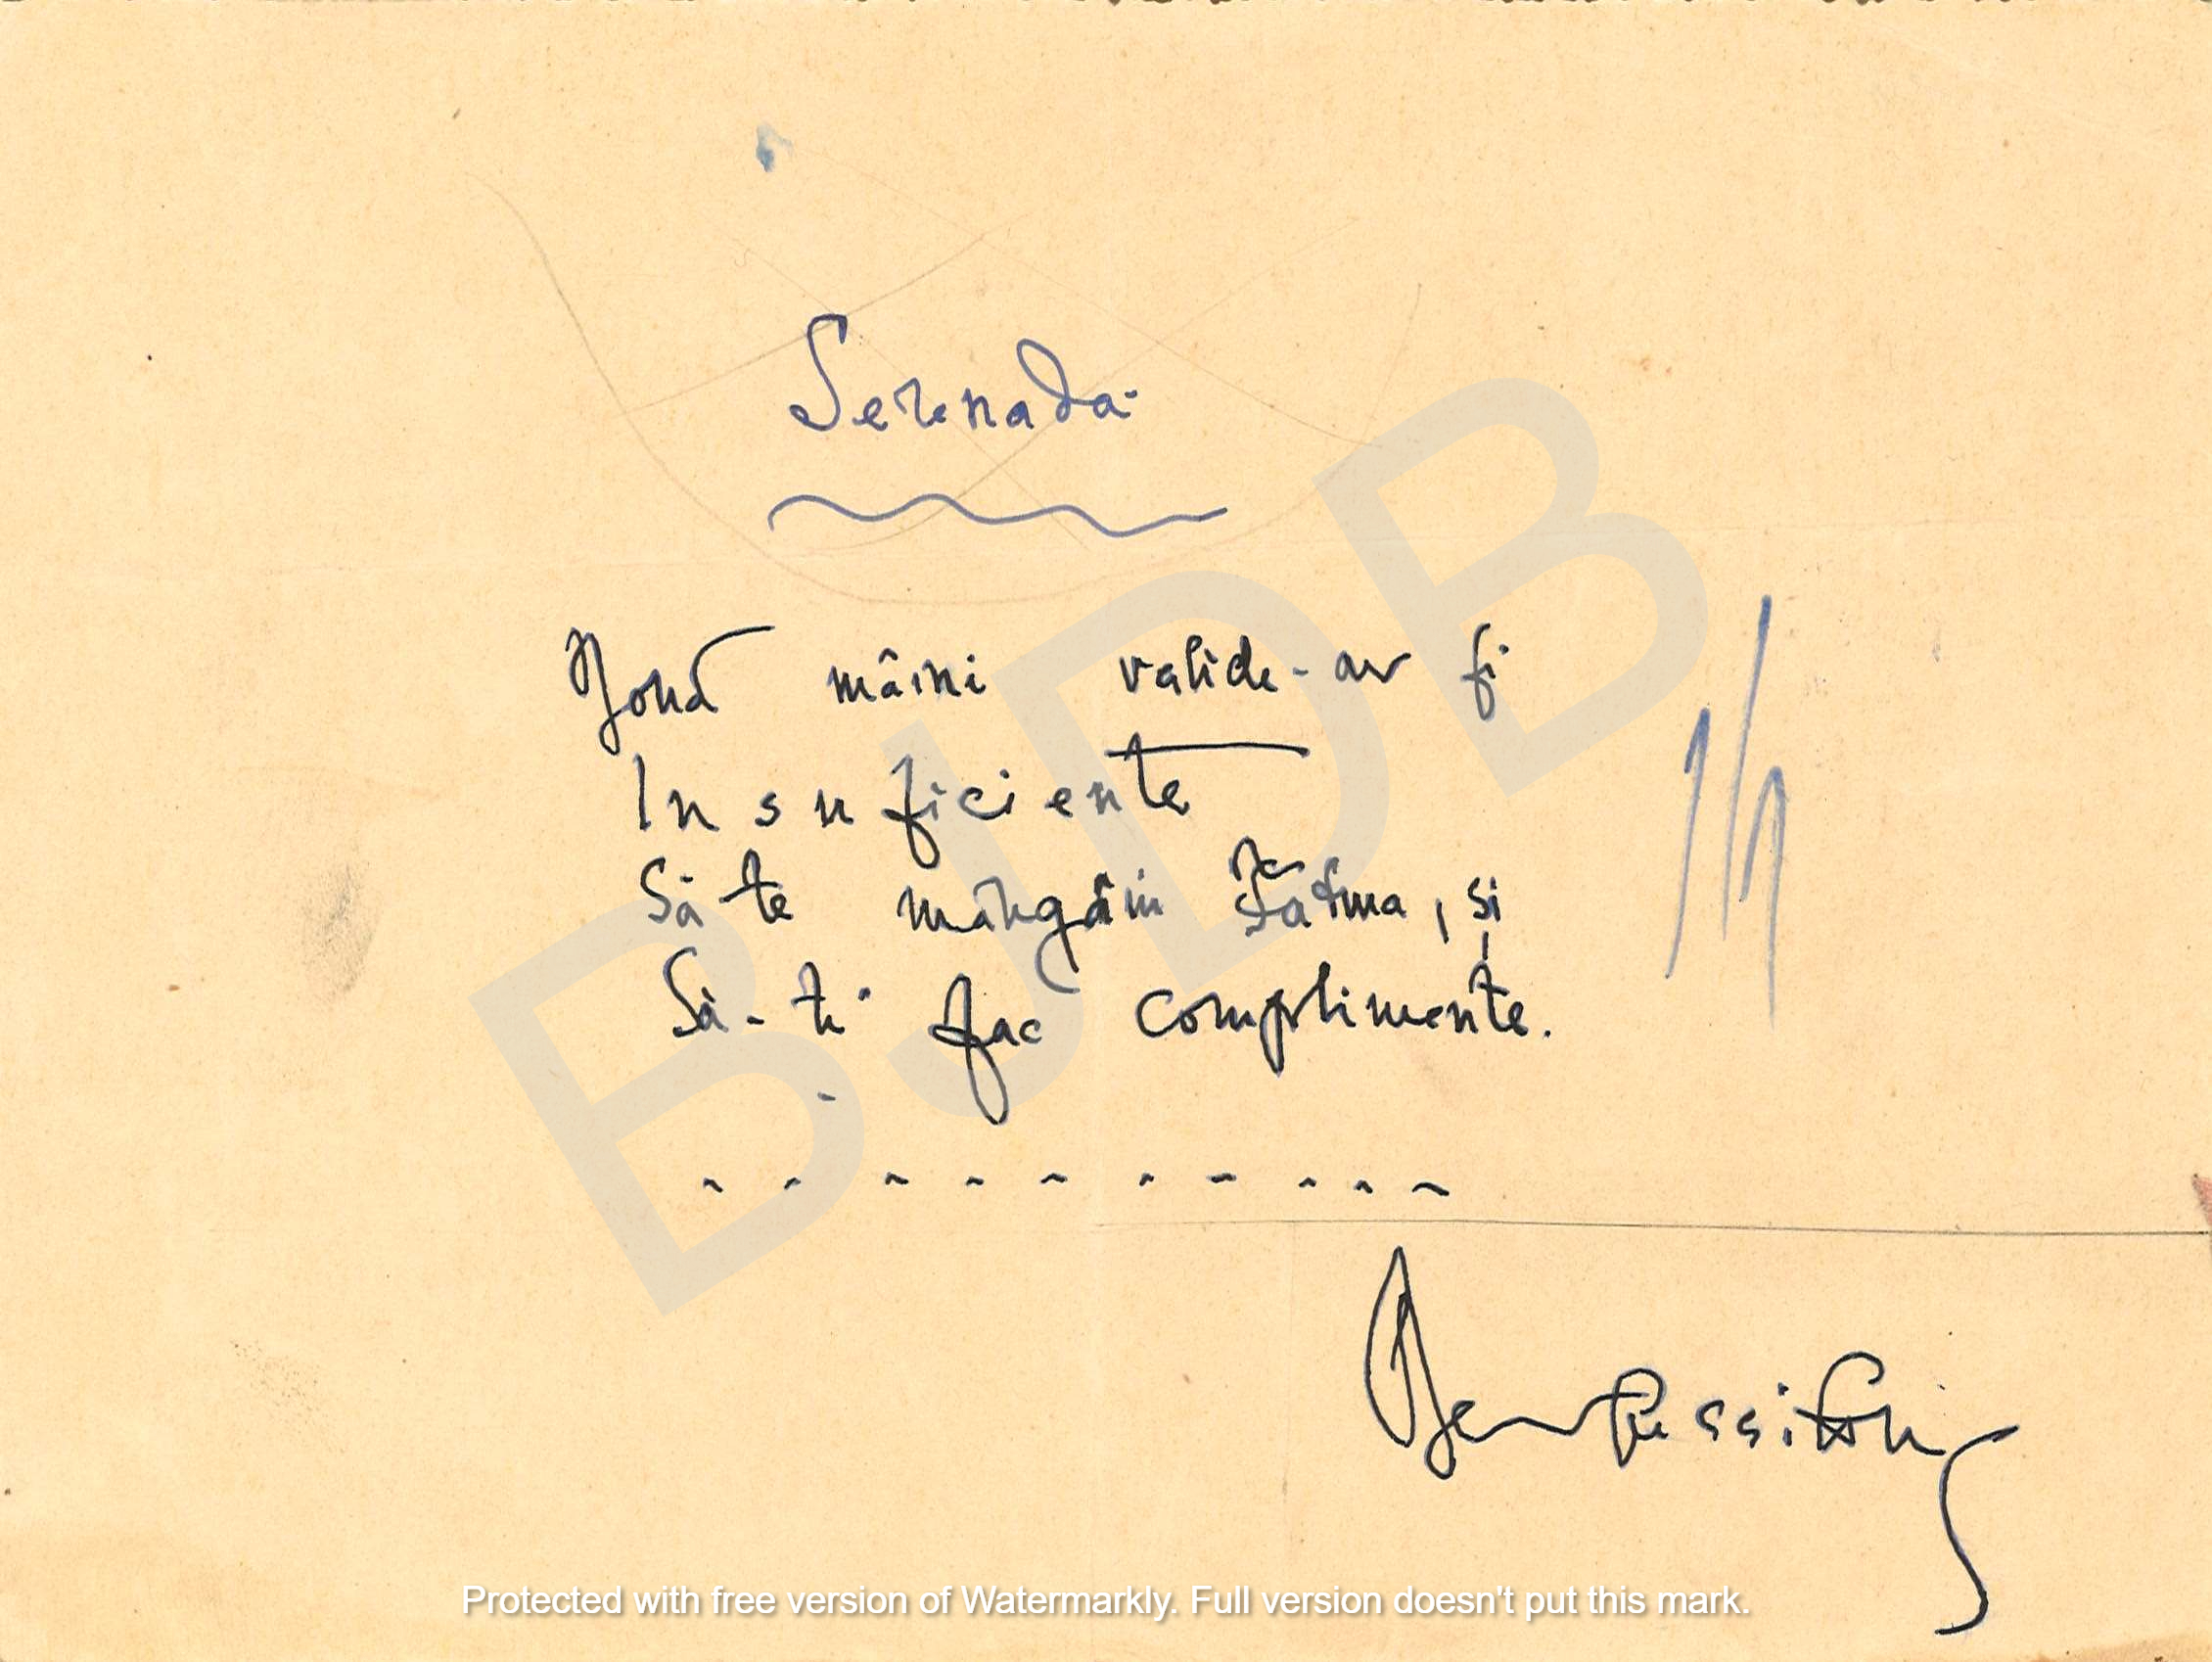 Serenadă
Două mâini valide-ar fi
Insuficiente
Să te mângâi Fatma, și
Să-ți fac complimente.
BJDB
Protected with free version of Watermarkly. Full version doesn't put this mark.